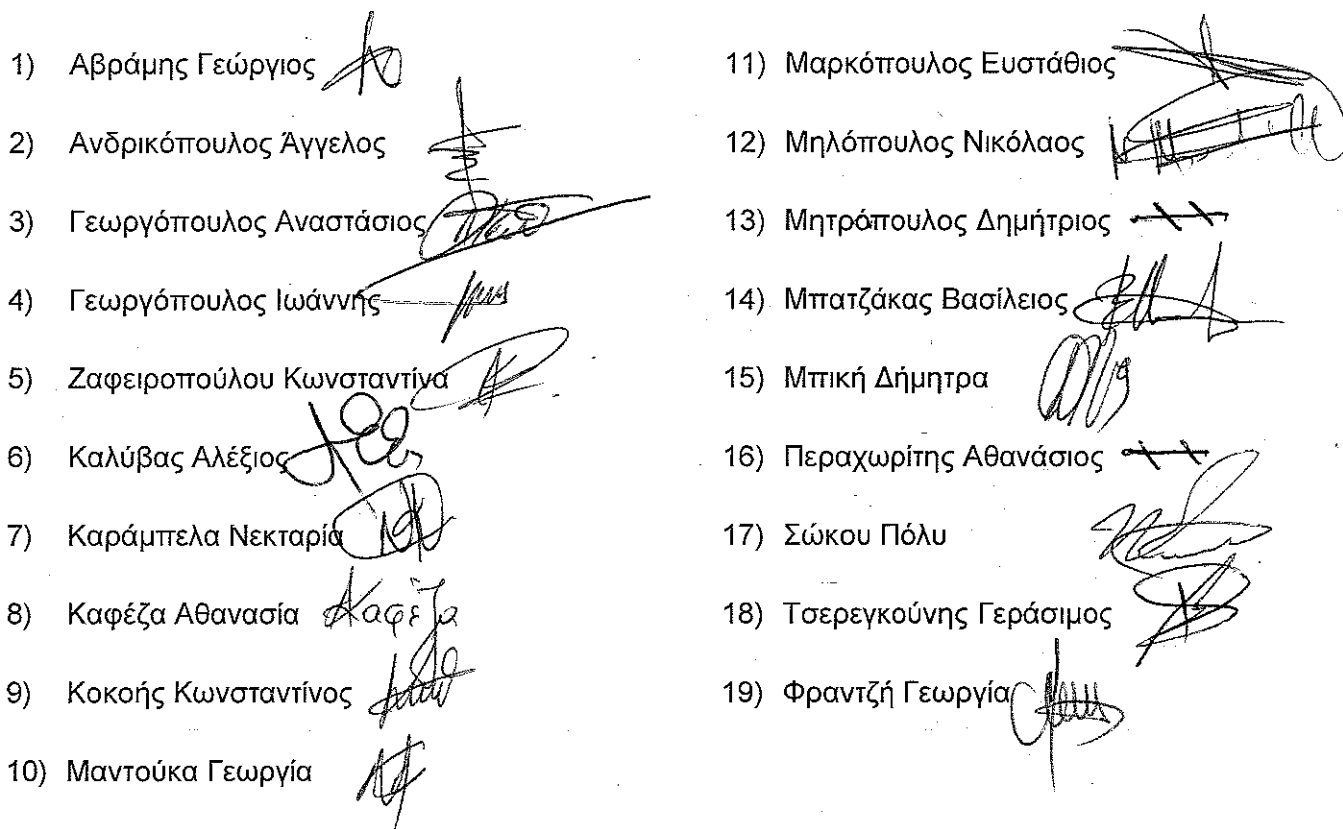 1) Αβράμης Γεώργιος
2) Ανδρικόπουλος Άγγελος
3) Γεωργόπουλος Αναστάσιος
4) Γεωργόπουλος Ιωάννης
5) Ζαφειροπούλου Κωνσταντίνα
6) Καλύβας Αλέξιος
7) Καράμπελα Νεκταρία
8) Καφέζα Αθανασία Καφέζα
9) Κοκοής Κωνσταντίνος
10) Μαντούκα Γεωργία
11) Μαρκόπουλος Ευστάθιος
12) Μηλόπουλος Νικόλαος
13) Μητρόπουλος Δημήτριος
14) Μπατζάκας Βασίλειος
15) Μπική Δήμητρα
16) Περαχωρίτης Αθανάσιος
17) Σώκου Πόλυ
18) Τσερεγκούνης Γεράσιμος
19) Φραντζή Γεωργία